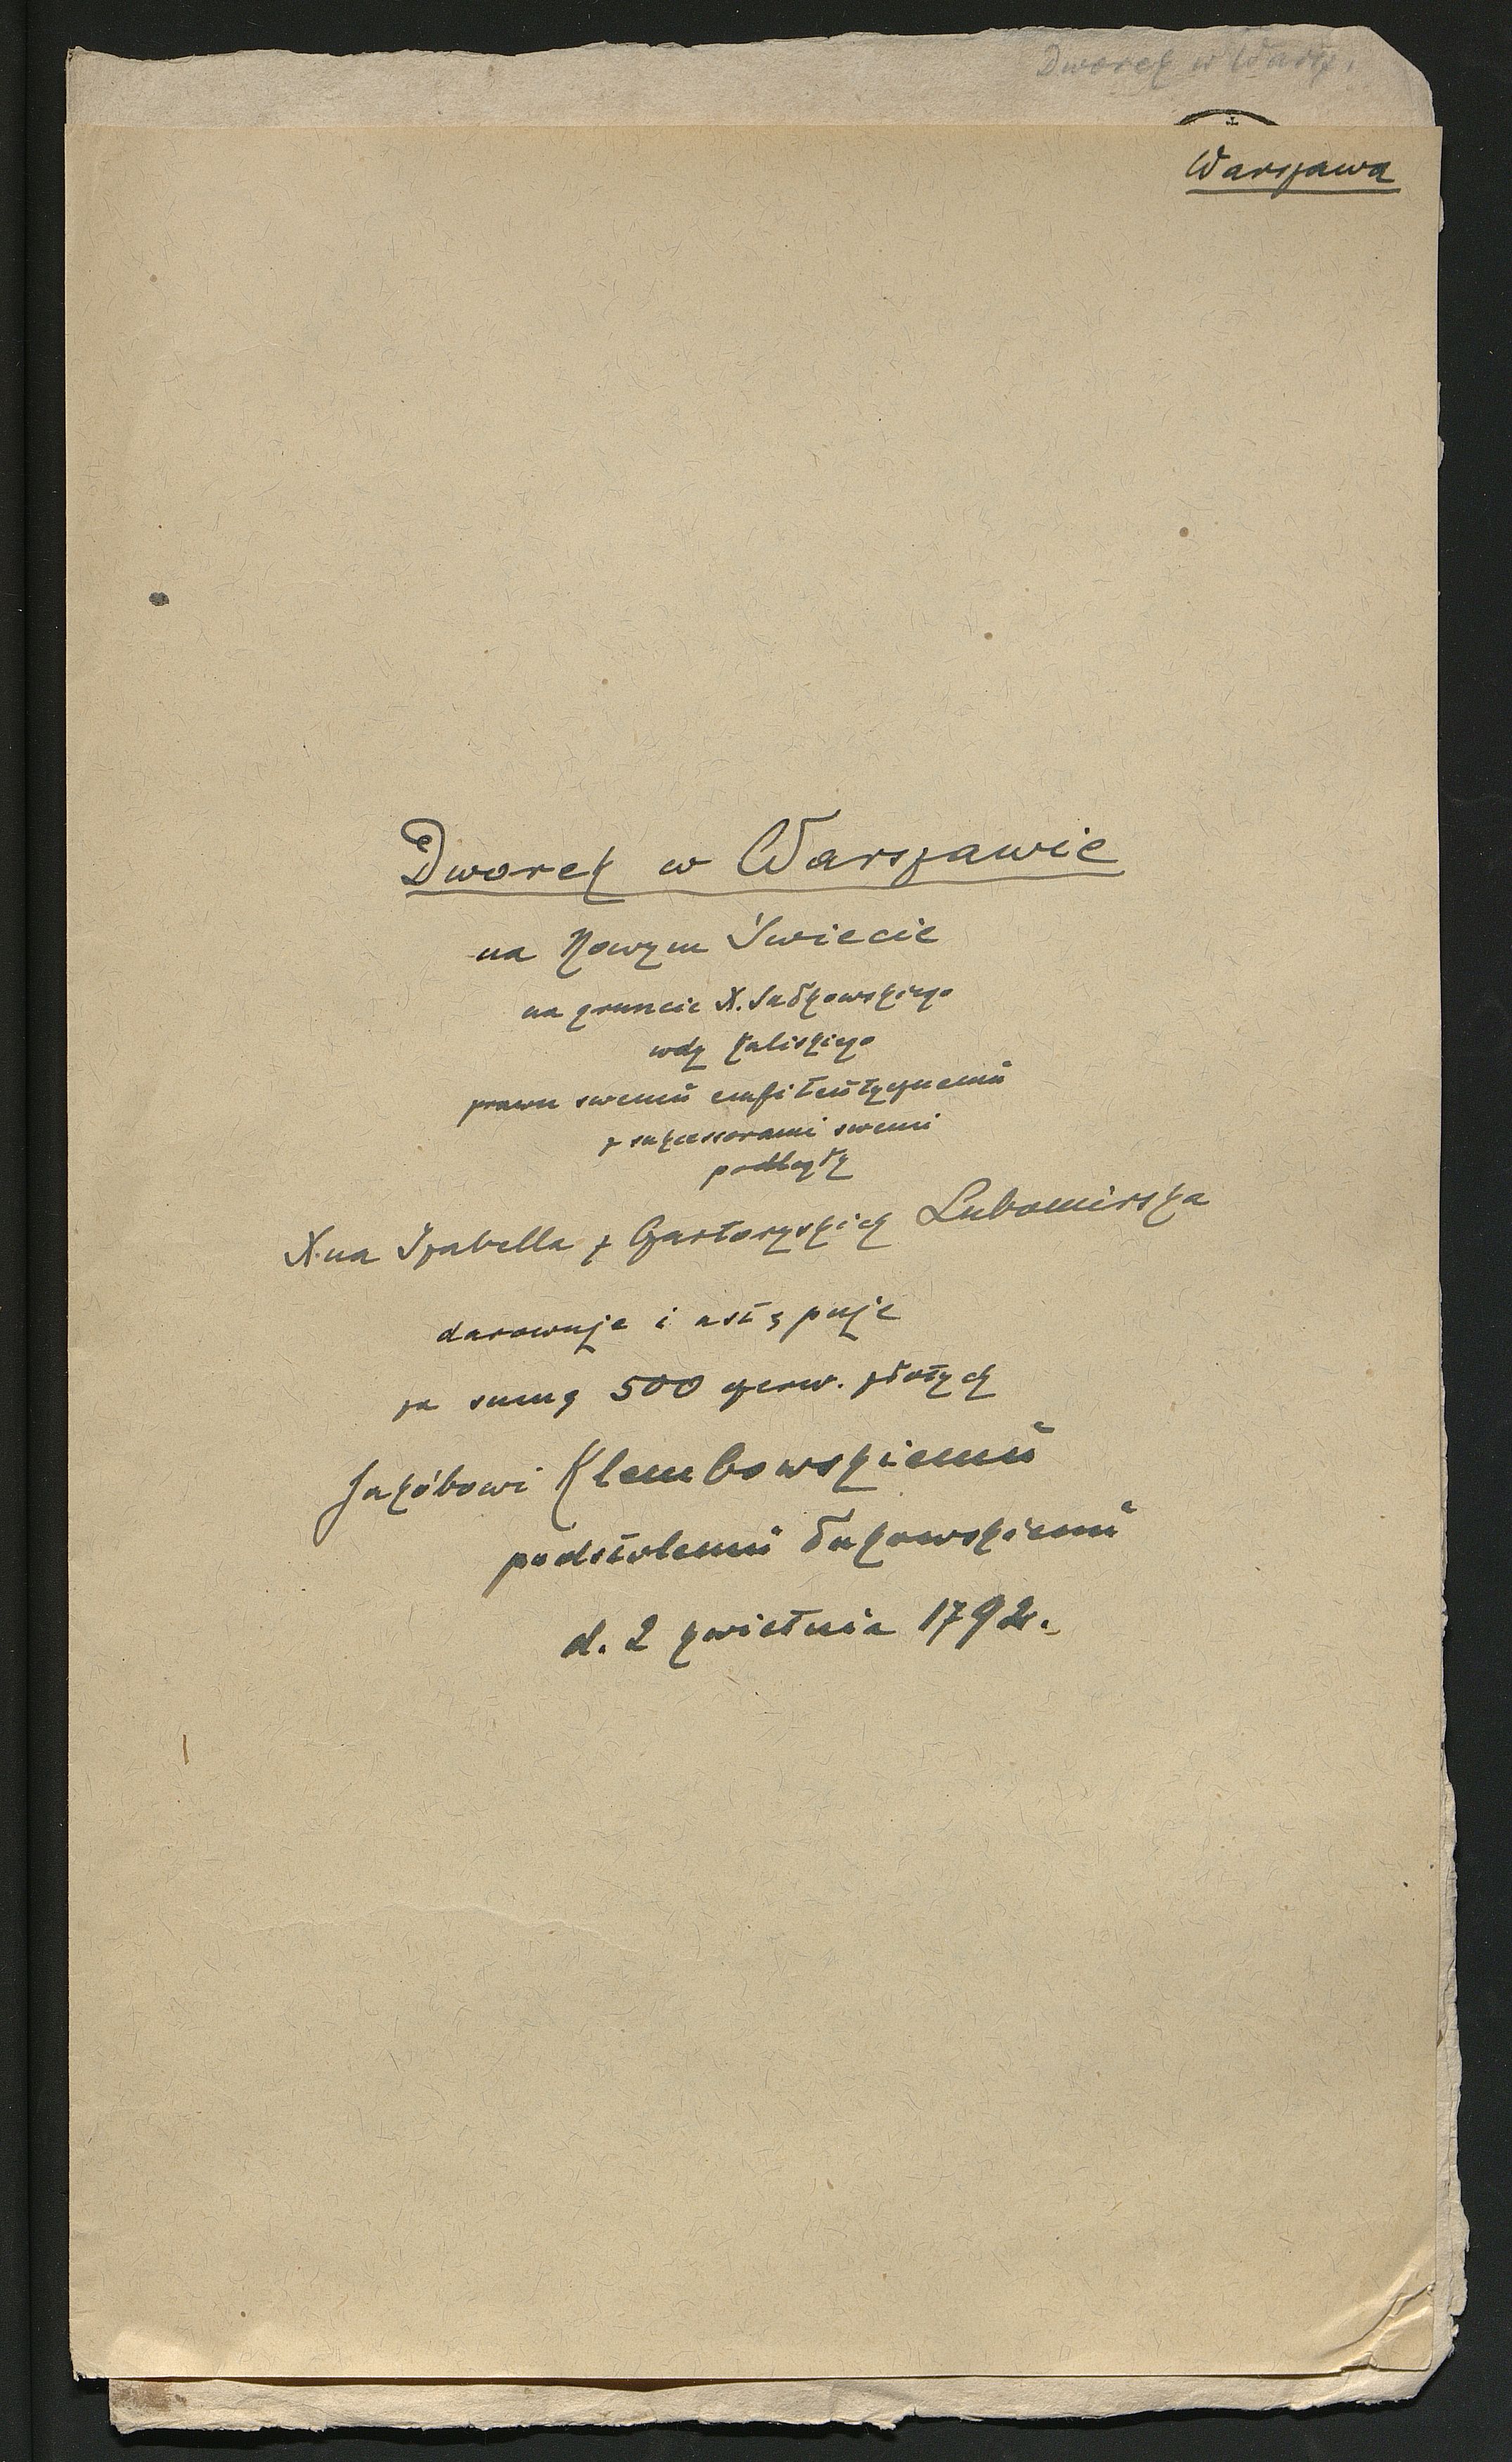 Dworek w Warsz.
Warszawa
Dworek w Warszawie
na Nowym Świecie
na gruncie X. Sułkowskiego
wdy kaliskiego
prawu swemu emfiteutycznemu
z sukcessorami swemi
podległy
Xna Izabella z Czartoryskich Lubomirska
darowuje i ustępuje
za sumę 500 czerw. złotych
Jakóbowi Klembowskiemu
podstolemu łukowskiemu
d. 2 kwietnia 1792.